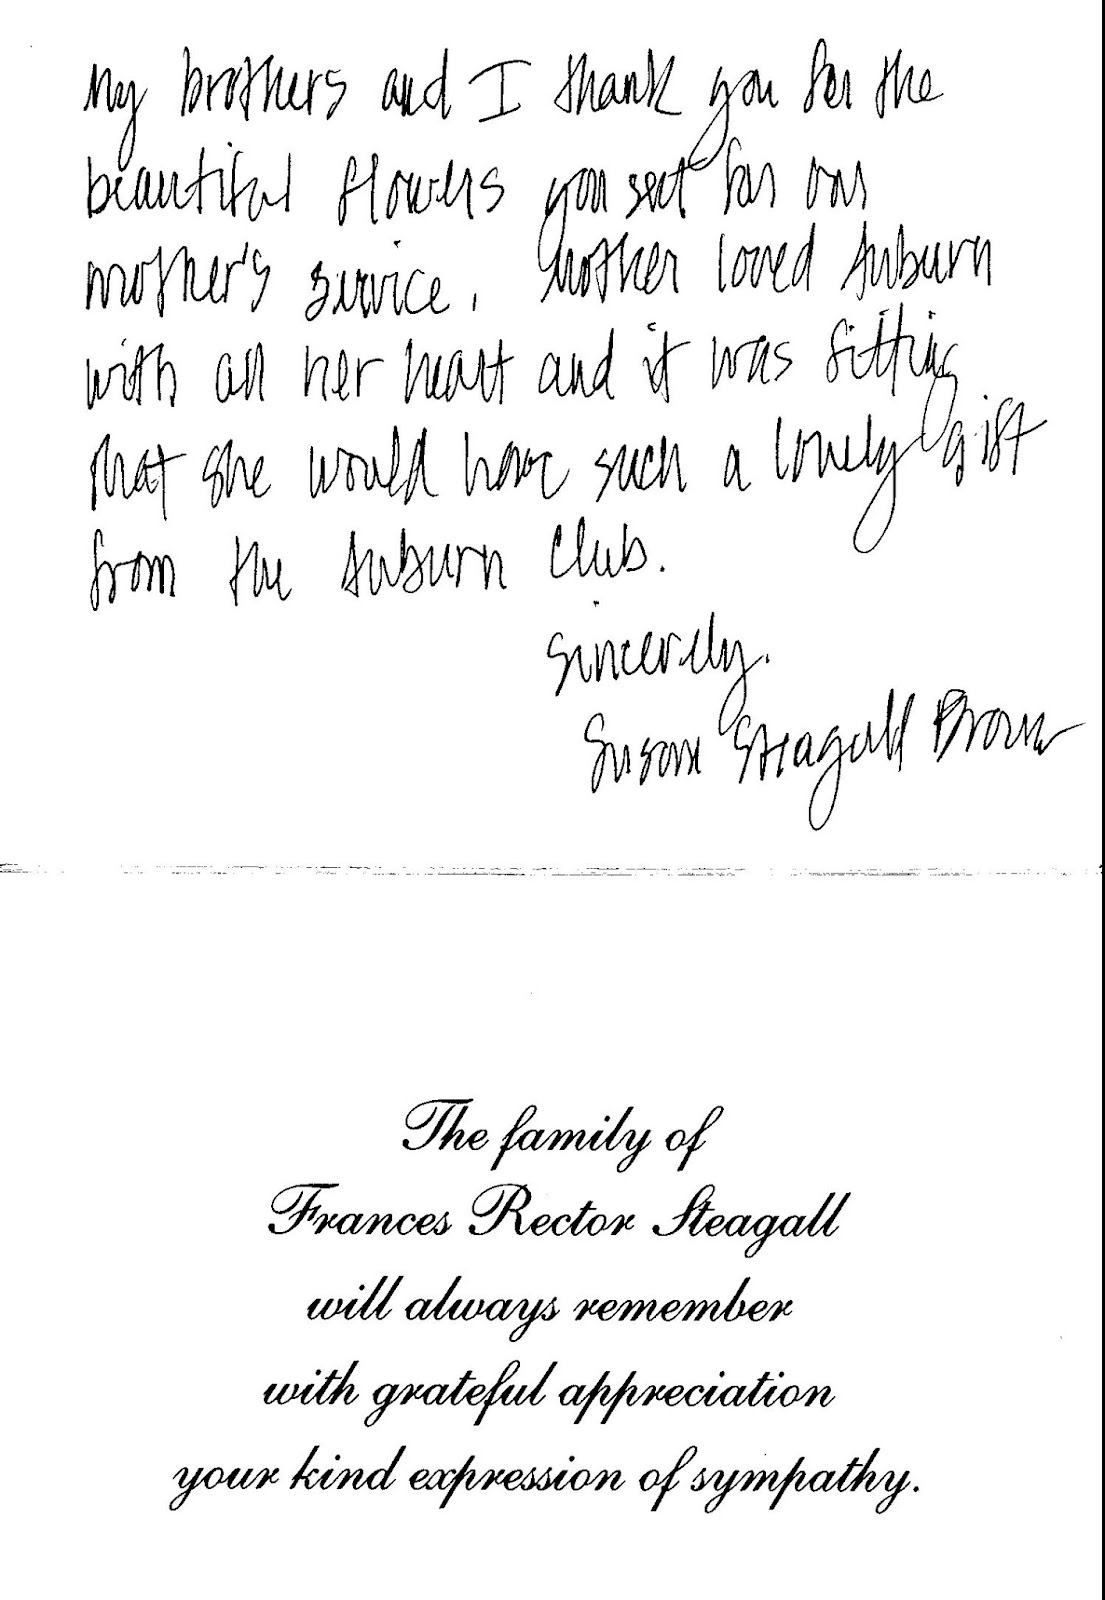 My brothers and I thank you for the
beautiful flowers you sent for our
mother's service. Mother loved Auburn
with all her heart and it was fitting
that she would have such a lovely gift
from the Auburn Club.
Sincerely,
Susan Steagall Brown
The family of
Frances Rector Steagall
will always remember
with grateful appreciation
your kind expression of sympathy.